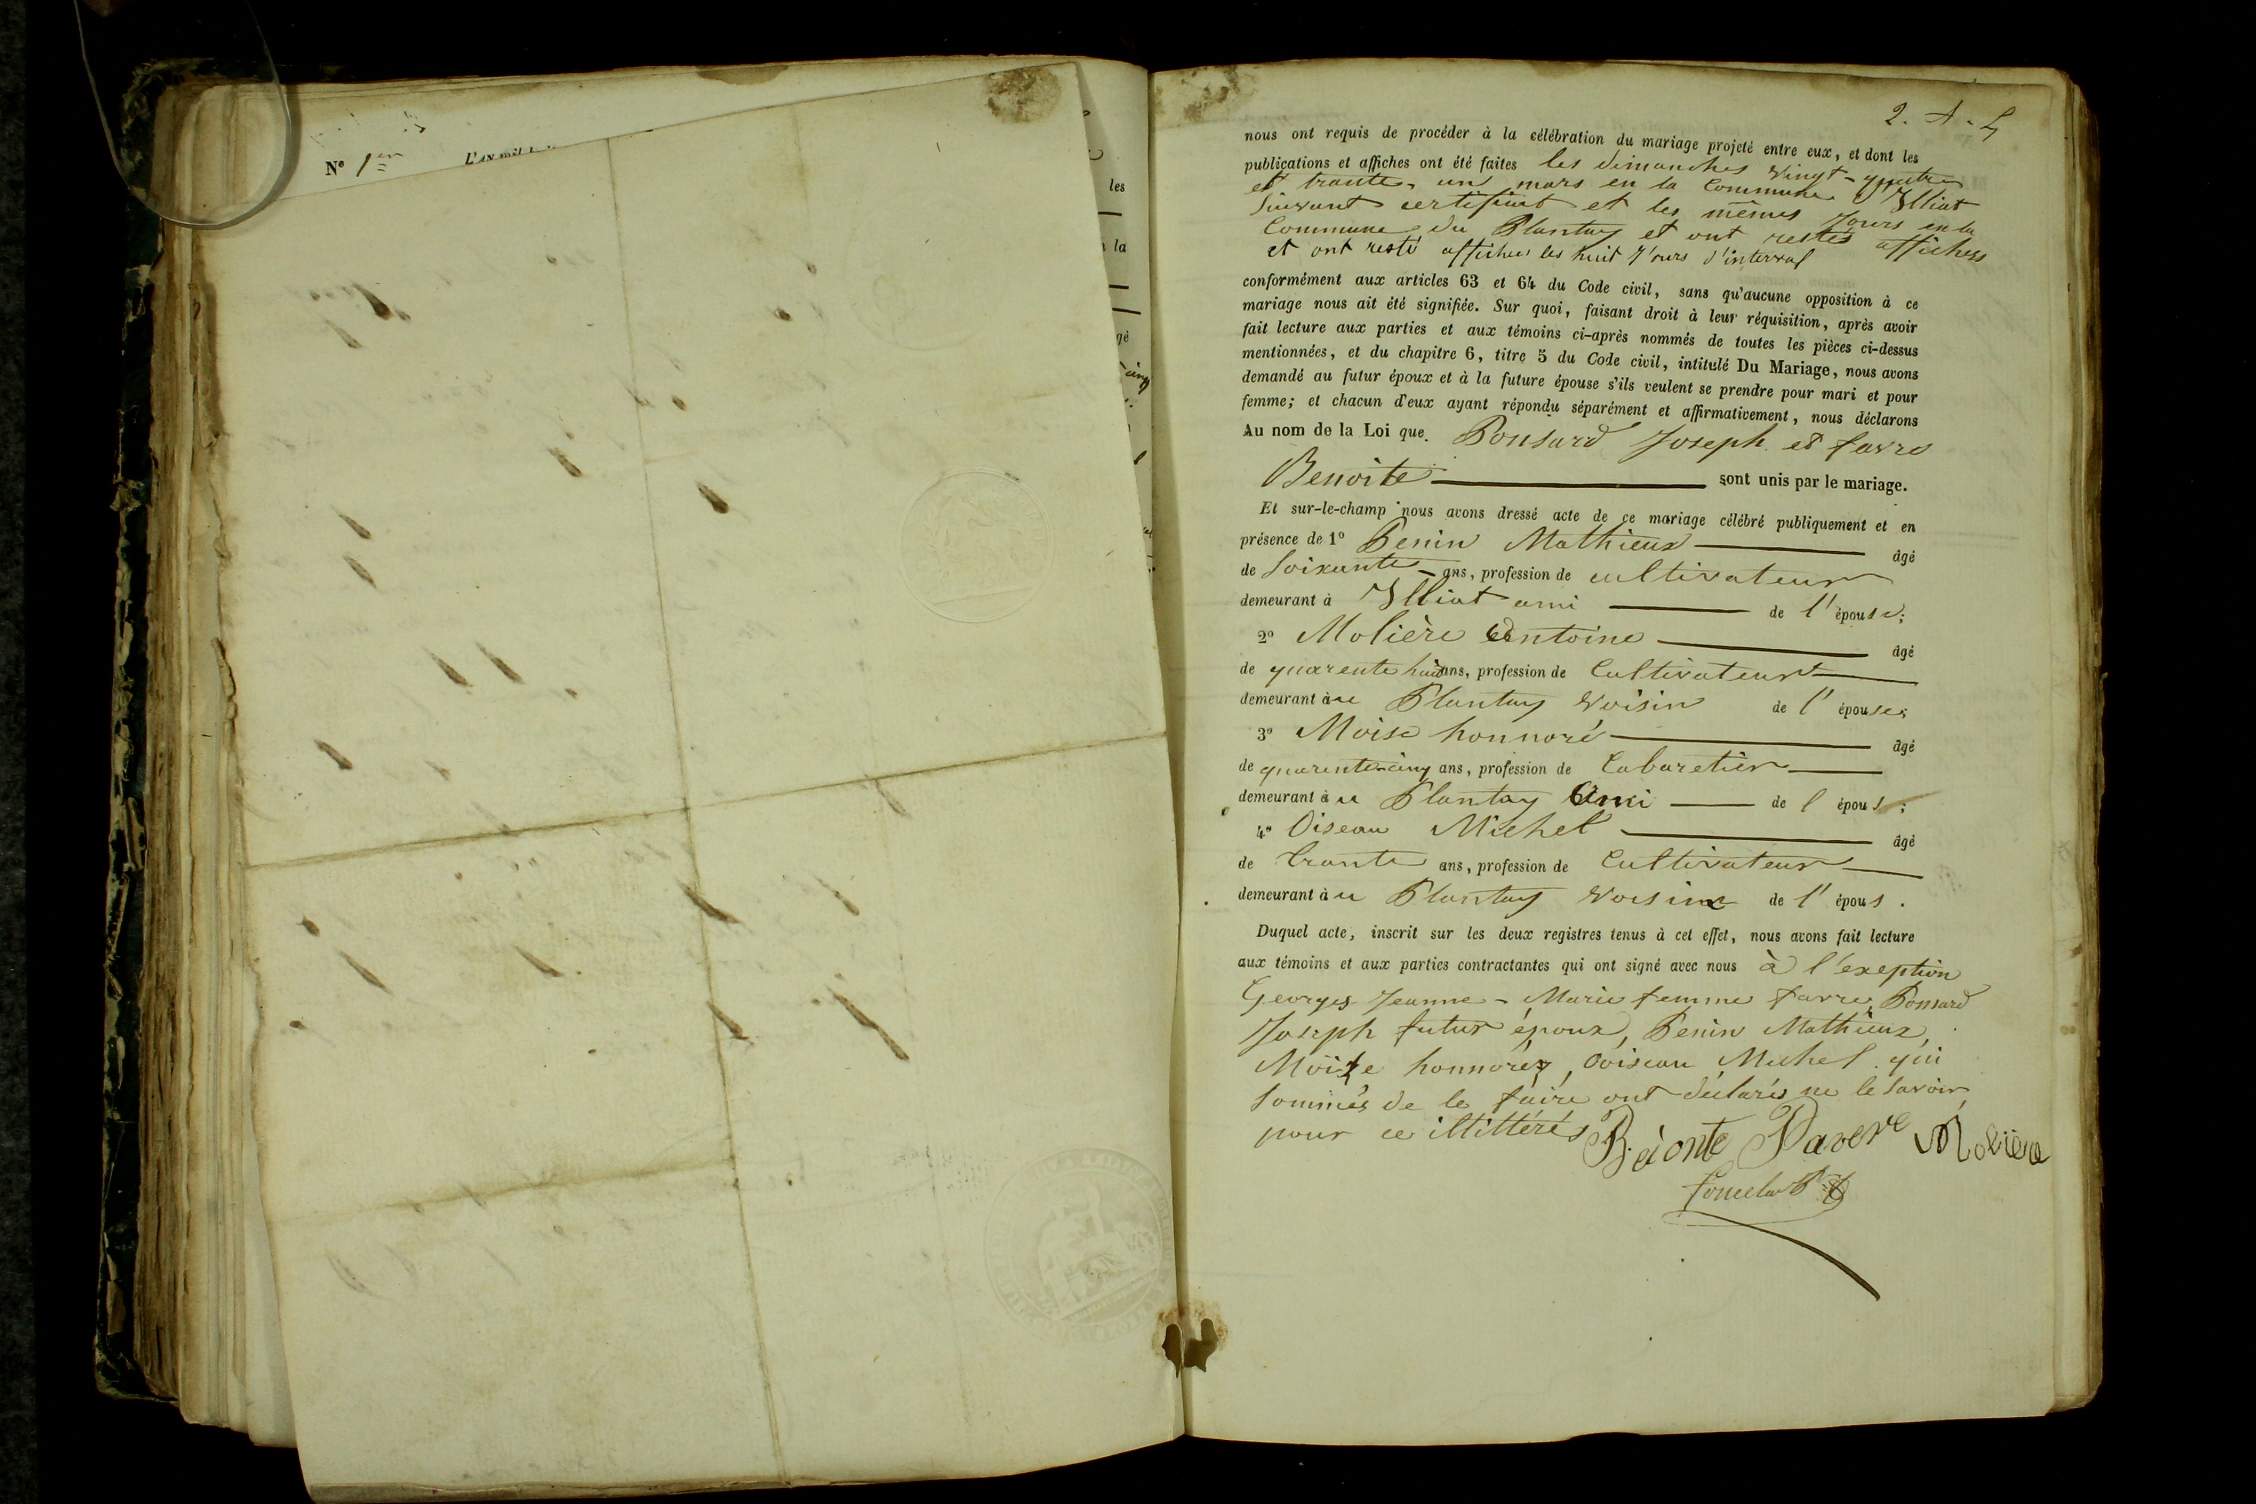 Nº 1er
les
la
gé
cinq
2. A. L
nous ont requis de procéder à la célébration du mariage projeté entre eux, et dont les
publications et affiches ont été faites les dimanches vingt-quatre
et trante-un mars en la Commune d'Illiat
suivant certificat et les mêmes jours en la
Commune du Plantay et ont restés affichess
et ont resté affichés les huit j'ours d'interval
conformément aux articles 63 et 64 du Code civil, sans qu'aucune opposition à ce
mariage nous ait été signifiée. Sur quoi, faisant droit à leur réquisition, après avoir
fait lecture aux parties et aux témoins ci-après nommés de toutes les pièces ci-dessus
mentionnées, et du chapitre 6, titre 5 du Code civil, intitulé Du Mariage, nous avons
demandé au futur époux et à la future épouse s'ils veulent se prendre pour mari et pour
femme; et chacun d'eux ayant répondu séparément et affirmativement, nous déclarons
Au nom de la Loi que Ponsard Joseph et favre
Benoite sont unis par le mariage.
Et sur-le-champ nous avons dressé acte de ce mariage célébré publiquement et en
présence de 1º Penin Mathieux âgé
de Soixante ans, profession de cultivateur
demeurant à Illiat ami de l'épouse;
2º Molière Antoine âgé
de quarente huit ans, profession de Cultivateur
demeurant àu Plantay voisin de l'épouse;
3º Moise honnoré âgé
de quarente-cinq ans, profession de Cabaretier
demeurant àu Plantay Ami de l épous;
4º Oiseau Michel âgé
de trante ans, profession de Cultivateur
demeurant àu Plantay voisin de l'épous.
Duquel acte, inscrit sur les deux registres tenus à cet effet, nous avons fait lecture
aux témoins et aux parties contractantes qui ont signé avec nous à l'exeption
Georges Jeanne-Marie femme favre, Ponsard
Joseph futur époux, Penin Mathieux,
Moïse honnoréz, Ooiseau Michel qui
sommés de le faire ont déclarés ne le savoir
pour ce illittérés
Molière